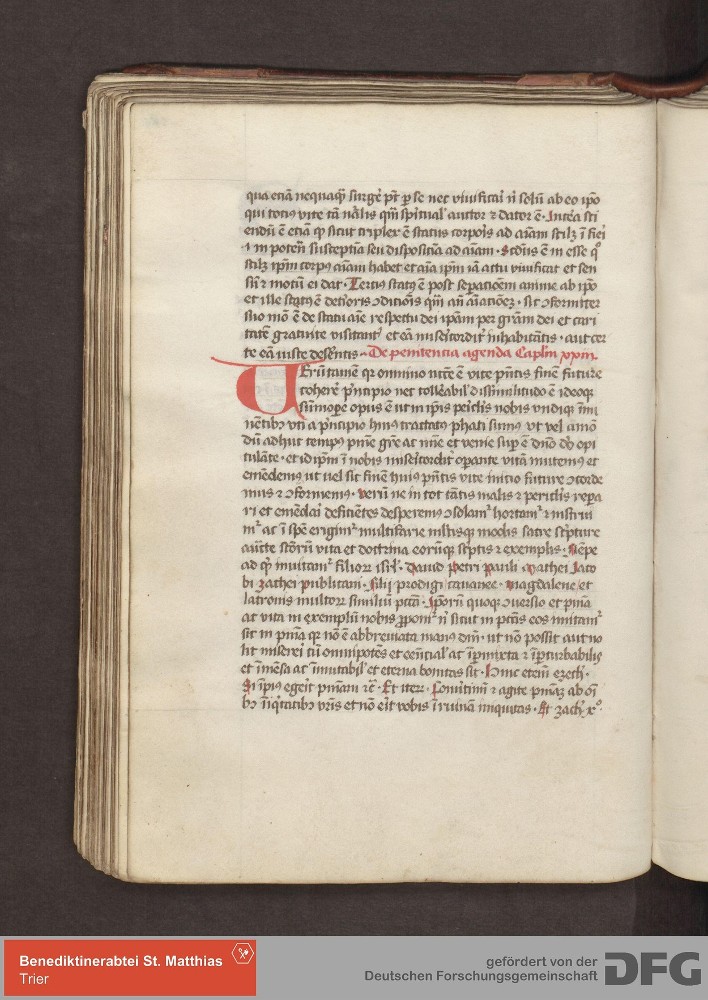 qua etiā nequaq̄ surgē pt̄ p se nec viuificai nī solū ab eo ipo
qui totiꝰ vite tā nālis qm̄ spūal auctor ⁊ dator ē · Intēa sci
endū ē etiā ꝙ sicut triplex ē status corpoīs ad aīam
i in potētī susceptīa seu dispositīa ad aīam · Scd̄us ē in esse
ip̄m corpꝰ aīam habet et aīa ip̄m iā actu viuificat et sen
sū ⁊ motū ei dat · Terciꝰ statꝰ ē post sepatioēm anime ab ipo
et ille statꝰ ē deterioris ↄditiōis qm̄ an̄ · sic ↄformiter
suo mō ē de statu aīe respectu dei ipam per grām dei et cari
tatē gratuite visitantꝭ et eā miscdit inhabitātis · aut cer
te eā iuste desēntis – De penitencia agenda Caplm̄ xxiii
VErūtamē qꝛ omnino ē vite pn̄tis finē future
cohere pncipio nec tollēabil dissimilitudo ē ideoqꝫ
sūmope opus ē ut in ipis piclis nobis vndiqꝫ imi
nētibꝰ vti a pncipio huiꝰ tractatꝰ phati sumꝰ ut vel amō
dū adhuc tempꝰ pn̄te grē ac mīe et venie sup ē dn̄o do opi
tulāte · et id ip̄m ī nobis miscdit opante vitā mutemꝰ et
emēdemꝰ ut vel sic finē huiꝰ pn̄tis vite initio future ↄcorde
mus ⁊ ↄformemꝰ · Verū ne in tot tātis malis ⁊ periclis repa
ri et emēdai deficiētes desperemꝰ ↄsolamꝰ hortamꝰ ⁊ instrui
mꝰ ac ī spē erigimꝰ multifarie mltisqꝫ modis sacre scpture
auctē scōrū vita et doctrina eorūqꝫ sctis ⁊ exemplis · Nēpe
ad qd̄ inuitamꝰ filioꝝ isrl · dauid Petri Pauli Mathei Jaco
bi zachei publicani · filii prodigi cananee · magdalene et
latronis multoꝝ similiū pctō · Ipoꝝ quoqꝫ ↄuersio et pnīa
ac vita in exemplū nobis ꝓponiꝰ vt sicut in pctīs eos imitamꝰ
sic in pnīa qꝛ nō ē abbreuiata manꝰ dnī · ut nō possit aut no
lit misereri cū omnipotēs et eēntial ac īpmixta ⁊ īpturbabilis
et īmēsa ac īmutabil et eterna bonitas sit · Hinc etiam ezech ·
Si īpiꝰ egerit pnīam ⁊c̄ · Et iteꝝ · Conutimī ⁊ agite pnīaꝫ ab oī
bꝰ īiqtatibꝰ vrīs et nō eit vobis ī ruinā iniquitas · Et zach xº ·
Benediktinerabtei St. Matthias
Trier
gefördert von der
Deutschen Forschungsgemeinschaft
DFG